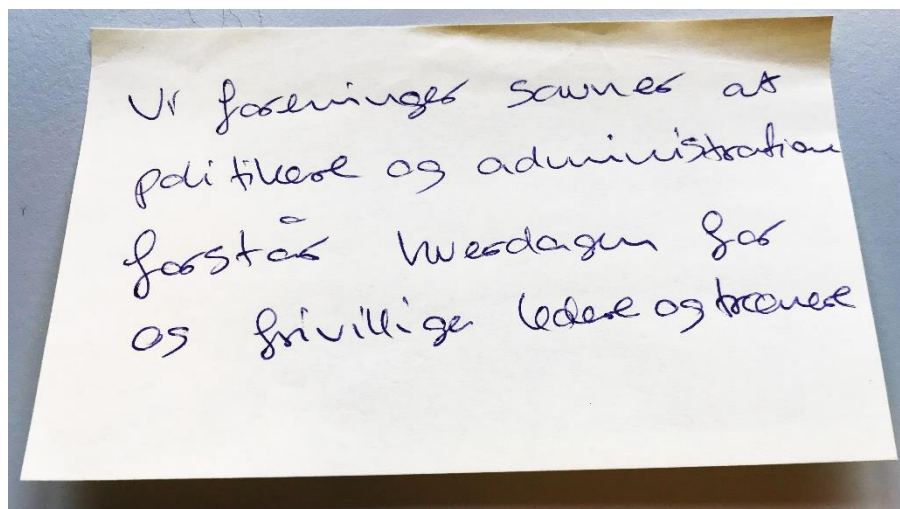 Vi foreninger savner at
politikere og administration
forstår hverdagen for
os frivillige ledere og trænere